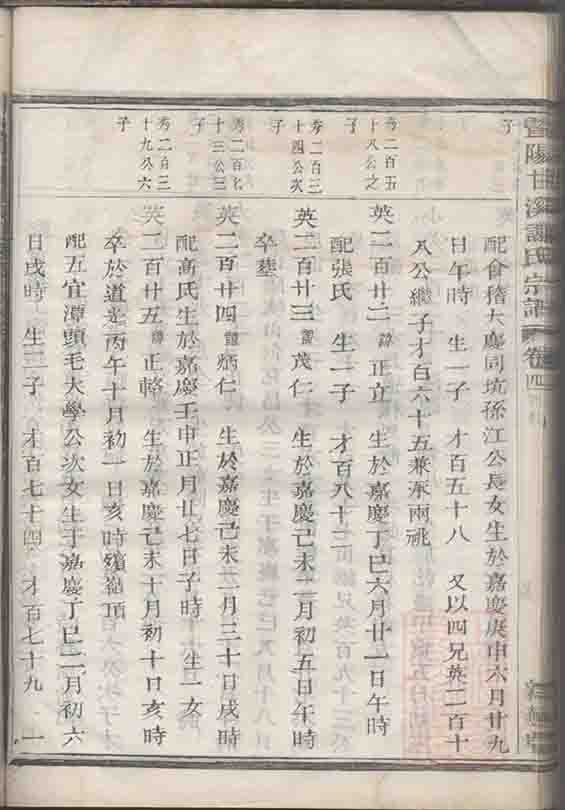 暨陽甘溪譚氏宗譜 卷四
子
配會稽大慶同坑孫江公長女生於嘉慶庚申六月廿九
日午時 生一子 才百五十八 又以四兄英二百十
八公繼子才百六十五兼承兩祧
秀二百五
十八公之
子
英二百廿二 諱正立 生於嘉慶丁巳六月廿一日午時
配張氏 生一子 才百八十二
秀二百三
十四公次
子
英二百廿三 諱茂仁 生於嘉慶己未二月初五日午時
卒葬
秀二百七
十三公三
子
英二百廿四 諱炳仁 生於嘉慶己未 月三十日戌時
配高氏生於嘉慶壬申正月廿七日子時 生一女
秀二百三
十九公六
子
英二百廿五 諱正輅 生於嘉慶己未十月初十日亥時
卒於道光丙午十月初一日亥時殯 頂
配五宜潭頭毛大學公次女生于嘉慶丁巳 月初六
日戌時 生二子 才百七十四 才百七十九 一